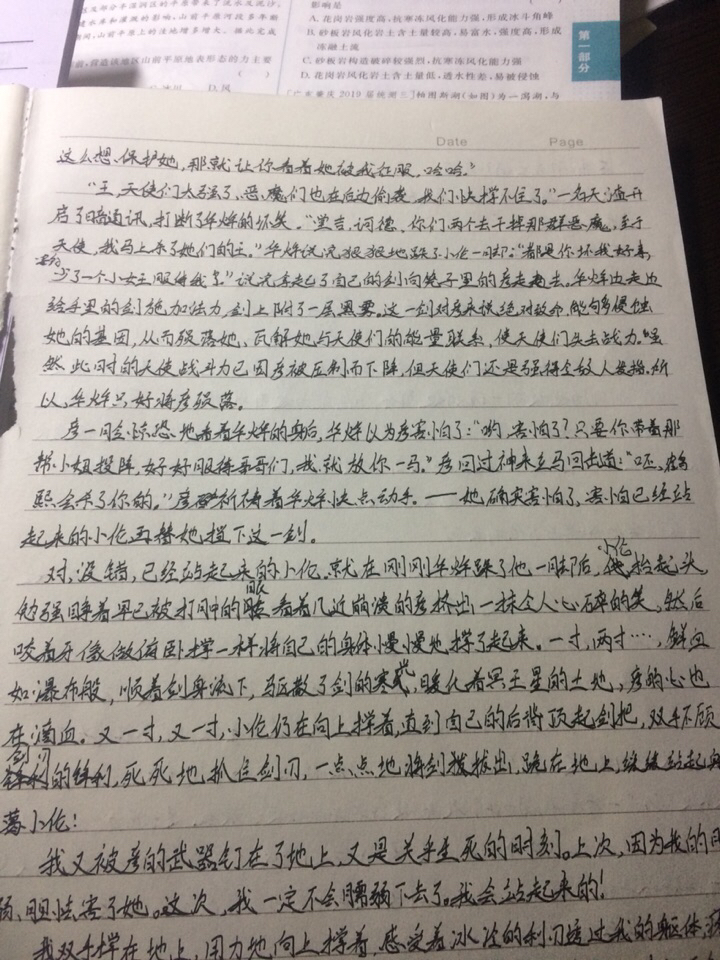 影响是
A. 花岗岩强度高，抗寒冻风化能力强，形成冰斗角峰
B. 砂板岩风化岩土含土量较高，易富水，强度高，形成
冻融土流
C. 砂板岩构造破碎较强烈，抗寒冻风化能力强
D. 花岗岩风化岩土含土量低，透水性差，易被侵蚀
第一部分
Date Page
这么想保护她，那就让你看着她被我征服，哈哈。”
“王，天使们太强了，恶魔们也在后边偷袭，我们快撑不住了。”一名天渣开
启了暗通讯，打断了华烨的坏笑。“堂吉，诃德，你们两个去干掉那群恶魔，至于
天使，我马上杀了她们的王。”华烨说完狠狠地跺了小伦一脚：“都是你坏我好事，
少了一个小女王服侍我了。”说完拿起了自己的剑向镜子里的彦走去。华烨边走边
给手里的剑施加法力，剑上附了一层黑雾。这一剑对彦来说绝对致命，能够侵蚀
她的基因，从而弱化她、瓦解她与天使们的能量联系，使天使们失去战力。“虽
然此时的天使战斗力已因彦被压制而下降，但天使们还是强得令敌人发指。所
以，华烨只好将彦
彦一脸惊恐地看着华烨的身后，华烨以为彦害怕了：“哟，害怕了？只要你带着那
帮小姐投降，好好服侍哥哥们，我就放你一马。”彦回过神来立马回击道：“呸，
熙会杀了你的。”彦祈祷着华烨快点动手。——她确实害怕了，害怕已经站
起来的小伦再替她挡下这一剑。
对，没错，已经站起来的小伦。就在刚刚华烨跺了他一脚后，小伦抬起头，
勉强睁着早已被打肿的眼看着几近崩溃的彦挤出一抹令人心碎的笑，然后
咬着牙像做俯卧撑一样将自己的身体慢慢地撑了起来。一寸，两寸…，鲜血
如瀑布般，顺着剑身流下，驱散了剑的寒气，暖化着冥王星的土地，彦的心也
在滴血。又一寸，又一寸，小伦仍在向上撑着，直到自己的后背顶起剑把，双手不顾
剑刃的锋利，死死地抓住剑刃，一点点地将剑拔出，跪在地上，继续站起
葛小伦：
我又被彦的武器钉在了地上，又是关乎生死的时刻。上次，因为我的
弱、胆怯害了她。这次，我一定不会懦弱下去了。我会站起来的！
我双手撑在地上，用力地向上撑着，感受着冰冷的利刃透过我的躯体，